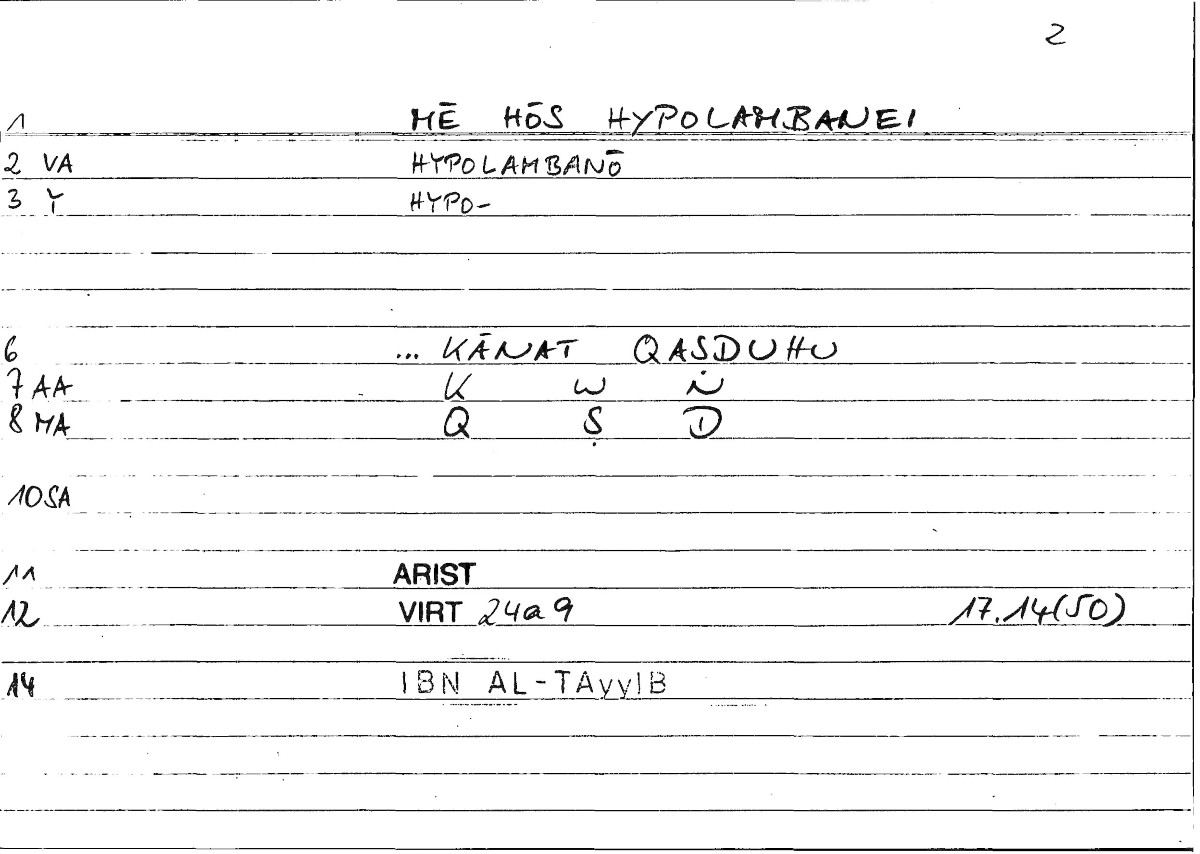 2
1 MĒ HŌS HYPOLAMBANEI
2 VA HYPOLAMBANŌ
3 Y HYPO-
6 ... KĀNAT QASDUHU
7 AA K W N
8 MA Q Ṣ D
10 SA
11 ARIST
12 VIRT 24a9 17.14(50)
14 IBN AL-TAyyIB